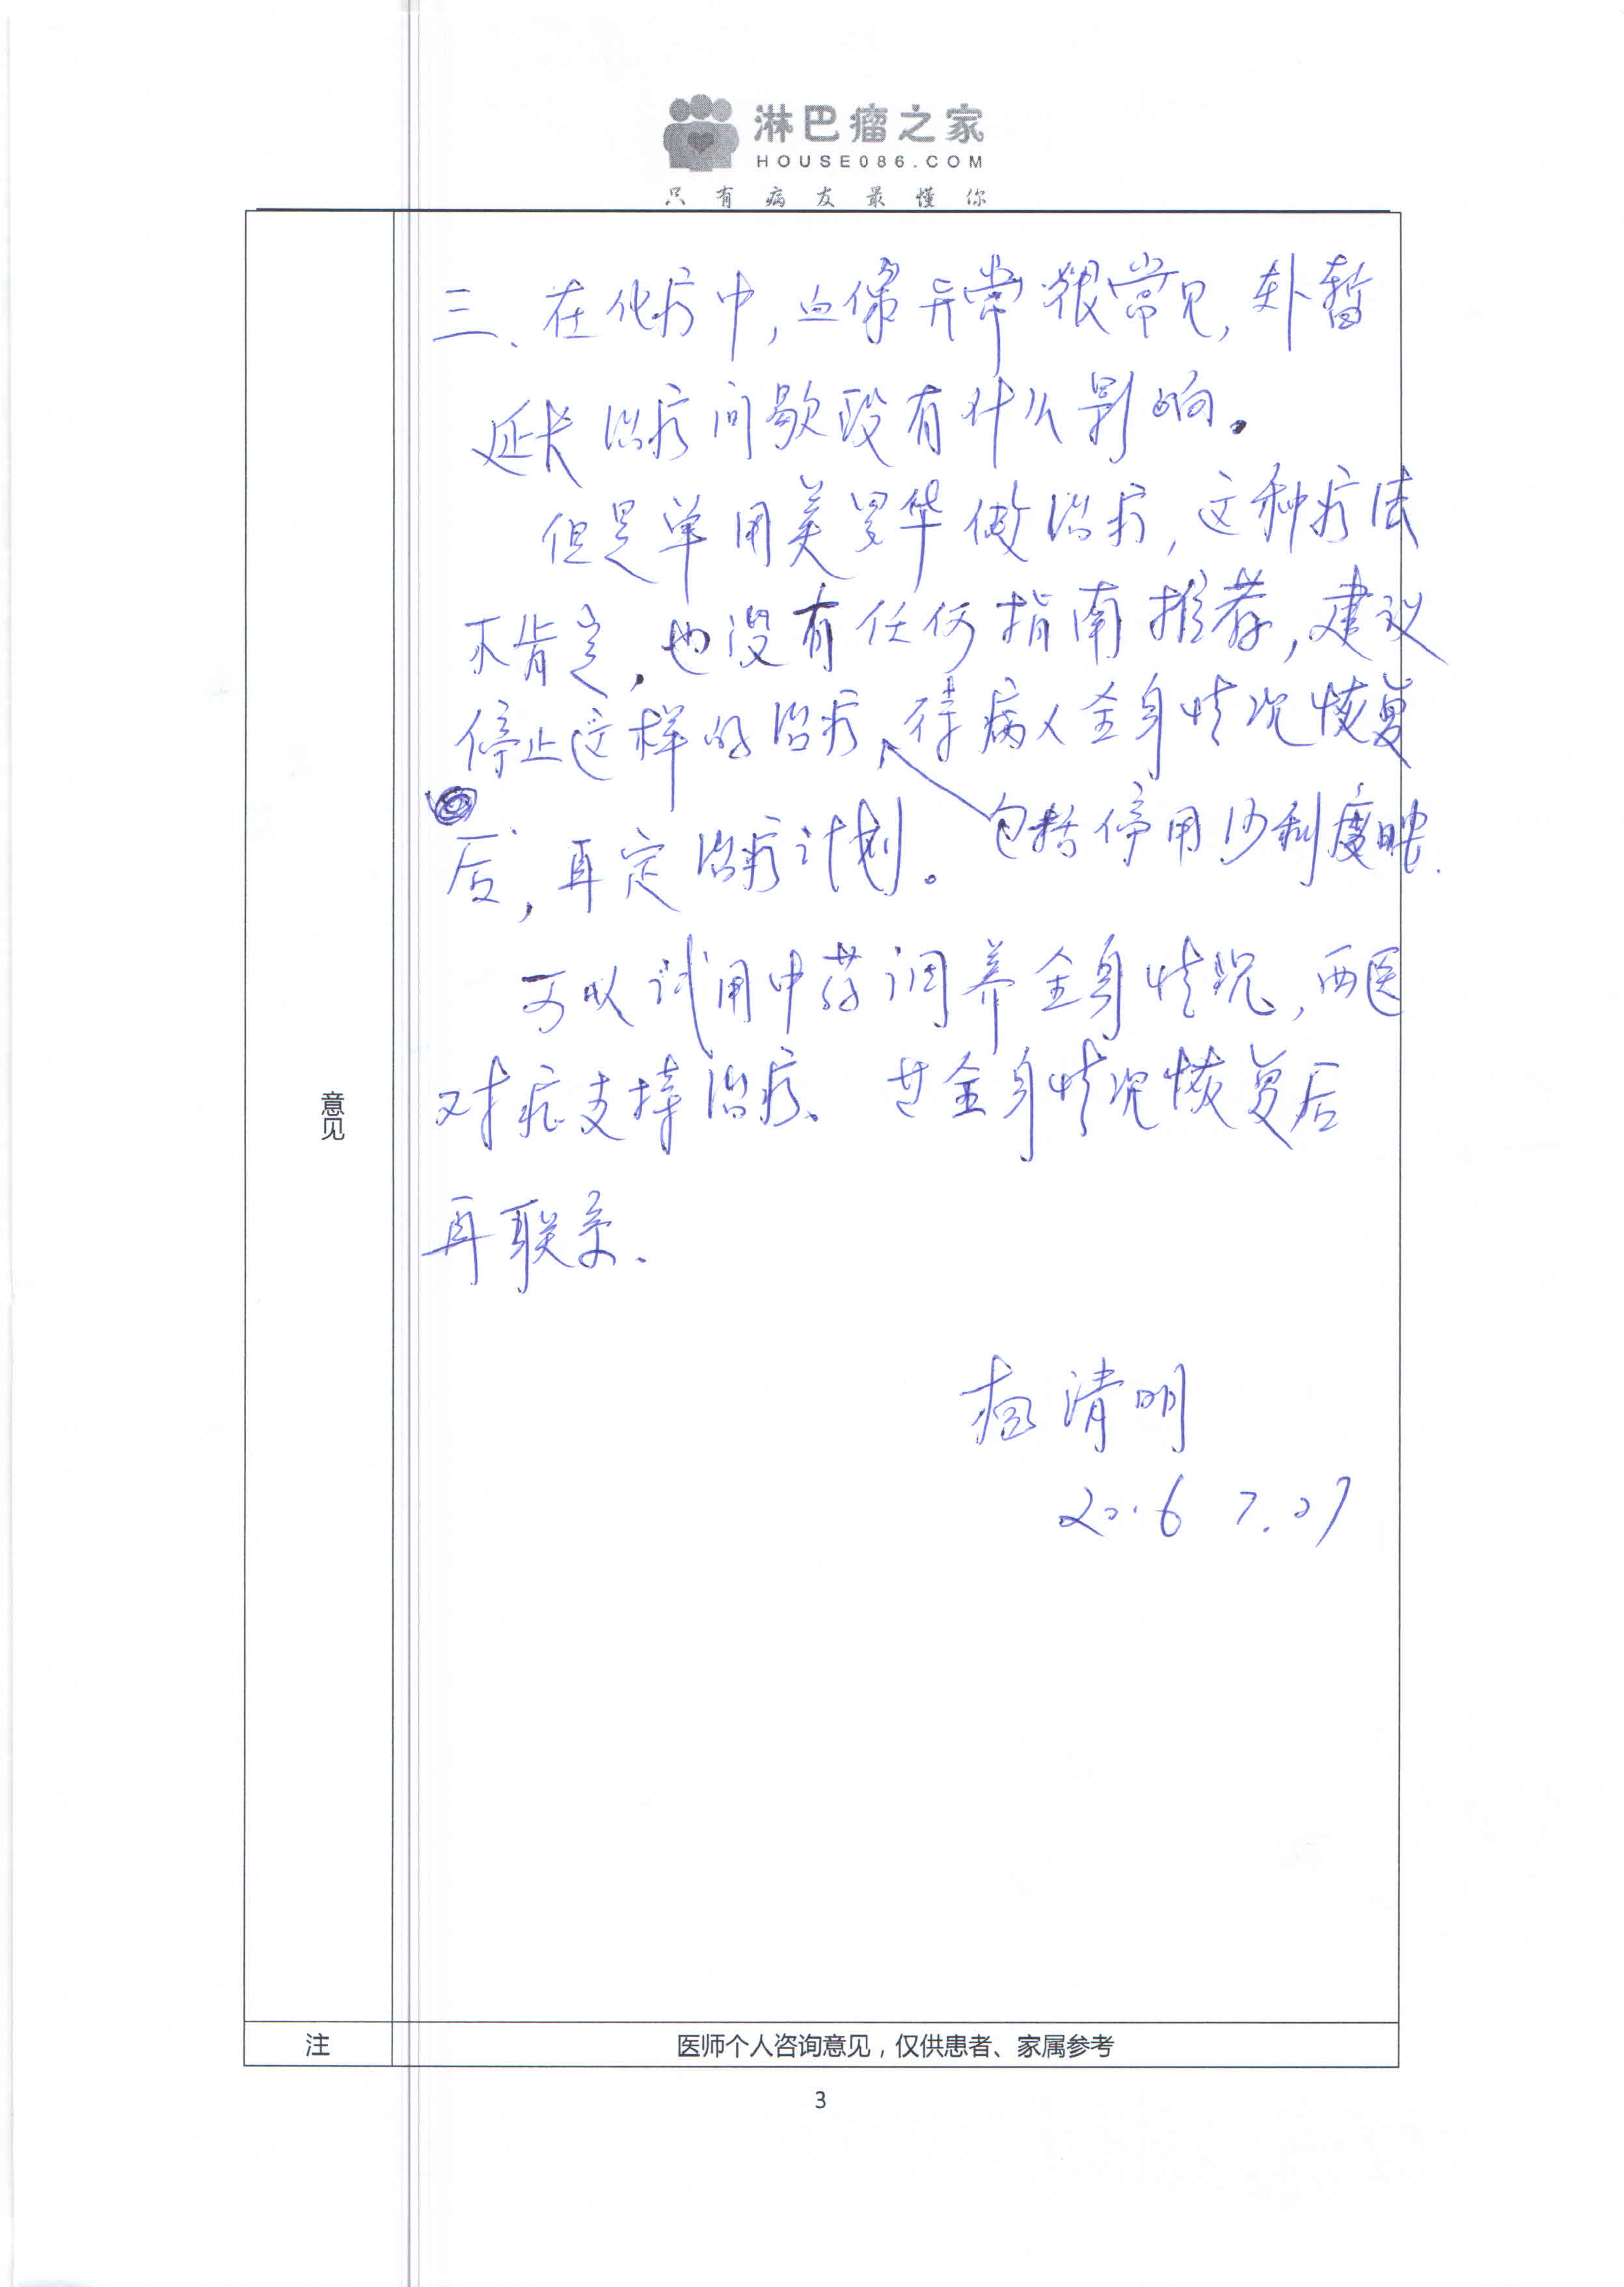 淋巴瘤之家
HOUSE086.COM
只有病友最懂你
三、在化疗中,血像异常很常见,
延长治疗间歇没有什么影响。
但是单用美罗华做治疗,这种疗法
不肯定,也没有任何指南推荐,建议
停止这样的治疗 待病人全身情况恢复
包括停用沙利度胺.
后,再定治疗计划。
可以试用中药调养全身情况,西医
对症支持治疗、 全身情况恢复后
再联系.
清明
2016 7.27
意见
注
医师个人咨询意见,仅供患者、家属参考
3